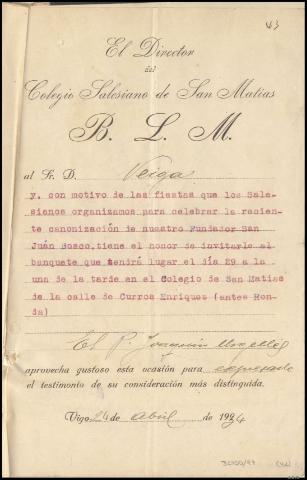 43
El Director
del
Colegio Salesiano de San Matías
B. L. M.
al Sr. D. Veiga
y, con motivo de las fiestas que los Sale-
sianos organizamos para celebrar la recien-
te canonización de nuestro Fundador San
Juán Bosco, tiene el honor de invitarle al
banquete que tendrá lugar el día 29 a la
una de la tarde en el Colegio de San Matias
de la calle de Curros Enriquez (antes Ron-
da)
El P. Joaquin
aprovecha gustoso esta ocasión para expresarle
el testimonio de su consideración más distinguida.
Vigo 24 de Abril de 1934